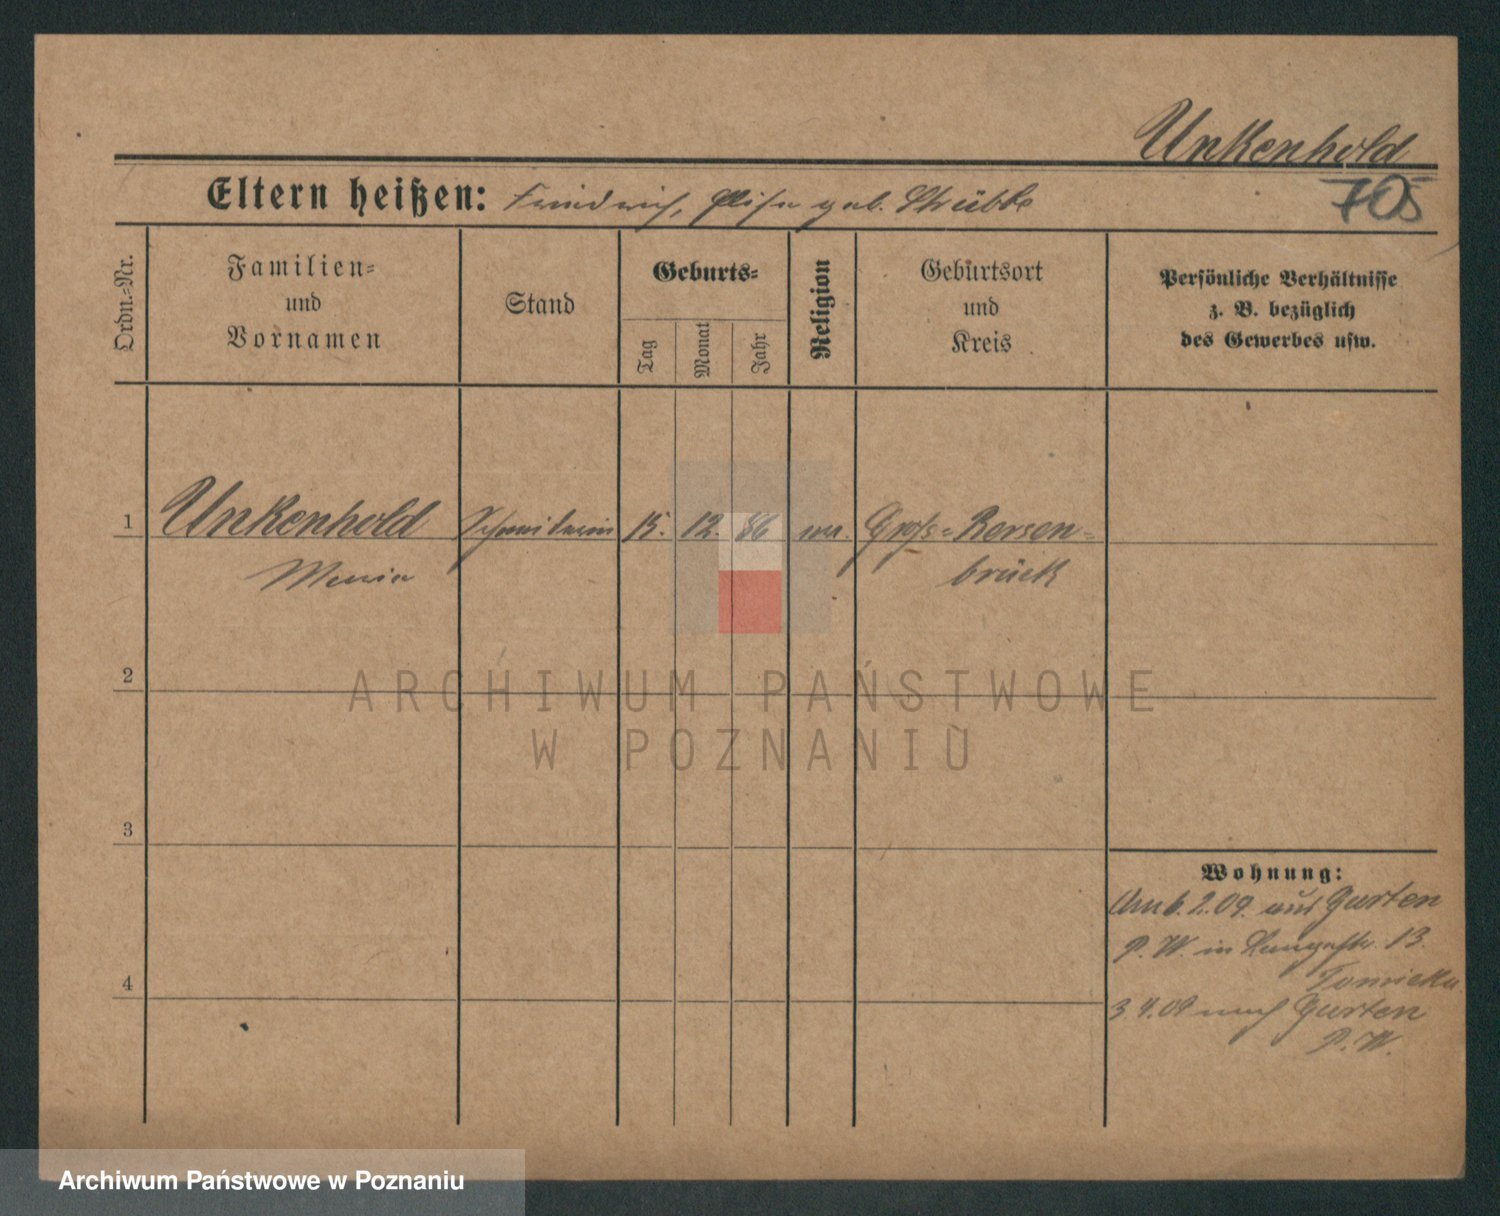 Unkenhold
705
Eltern heißen: Friedrich, Elise geb. Strübbe
Ordn.-Nr.
Familien- und Vornamen
Stand
Geburts-
Tag
Monat
Jahr
Religion
Geburtsort und Kreis
Persönliche Verhältnisse
z. B. bezüglich
des Gewerbes usw.
1 Unkenhold Schneiderin 15. 12. 86 Groß-Bersen-
Maria brück
2
ARCHIWUM PAŃSTWOWE
W POZNANIU
3
Wohnung:
6.2.09. aus Gurten
P. W. in Langestr. 13.
4
3.4.09 nach Gurten
P. W.
Archiwum Państwowe w Poznaniu